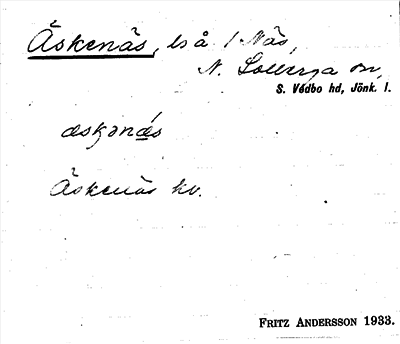 Äskenäs, ls å 1 Näs,
N. Solberga sn,
S. Vedbo hd, Jönk. l.
æskənǽs
Äskenäs kv.
FRITZ ANDERSSON 1933.